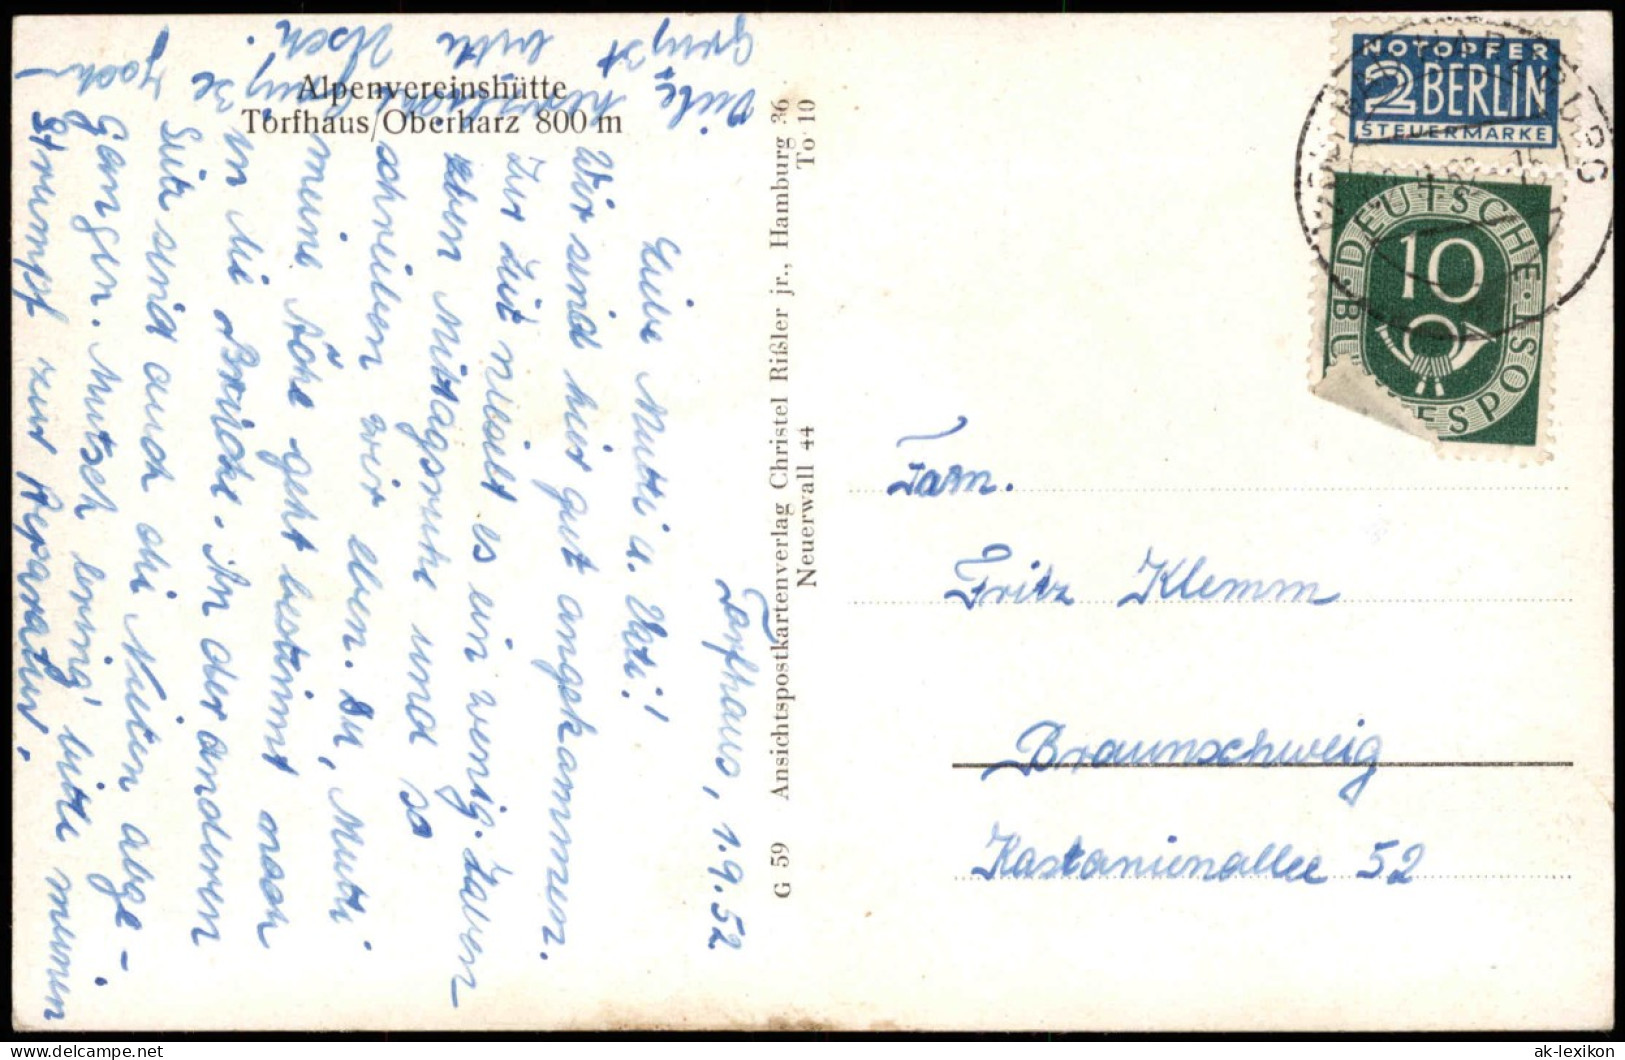 Alpenvereinshütte
Torfhaus/Oberharz 800 m
Torfhaus, 1.9.52
Liebe Mutti u. Vati!
Wir sind hier gut angekommen.
Zur Zeit nieselt es ein wenig. Haben
eben Mittagsruhe und so
schreiben wir eben. Du, Mutti
meine Nähe geht bestimmt nach
in die Brüche. An der anderen
Seite sind auch die Nieten abge-
gangen. Mutsch bring' bitte meinen
Strumpf zur Reparatur.
Viele
Grüße
bitte
Usch.
G 59 Ansichtspostkartenverlag Christel Rißler jr., Hamburg 36
Neuerwall 44 To 10
NOTOPFER
2 BERLIN
STEUERMARKE
DEUTSCHE BUNDESPOST
10
Fam.
Fritz Klemm
Braunschweig
Kastanienallee 52
ak-lexikon